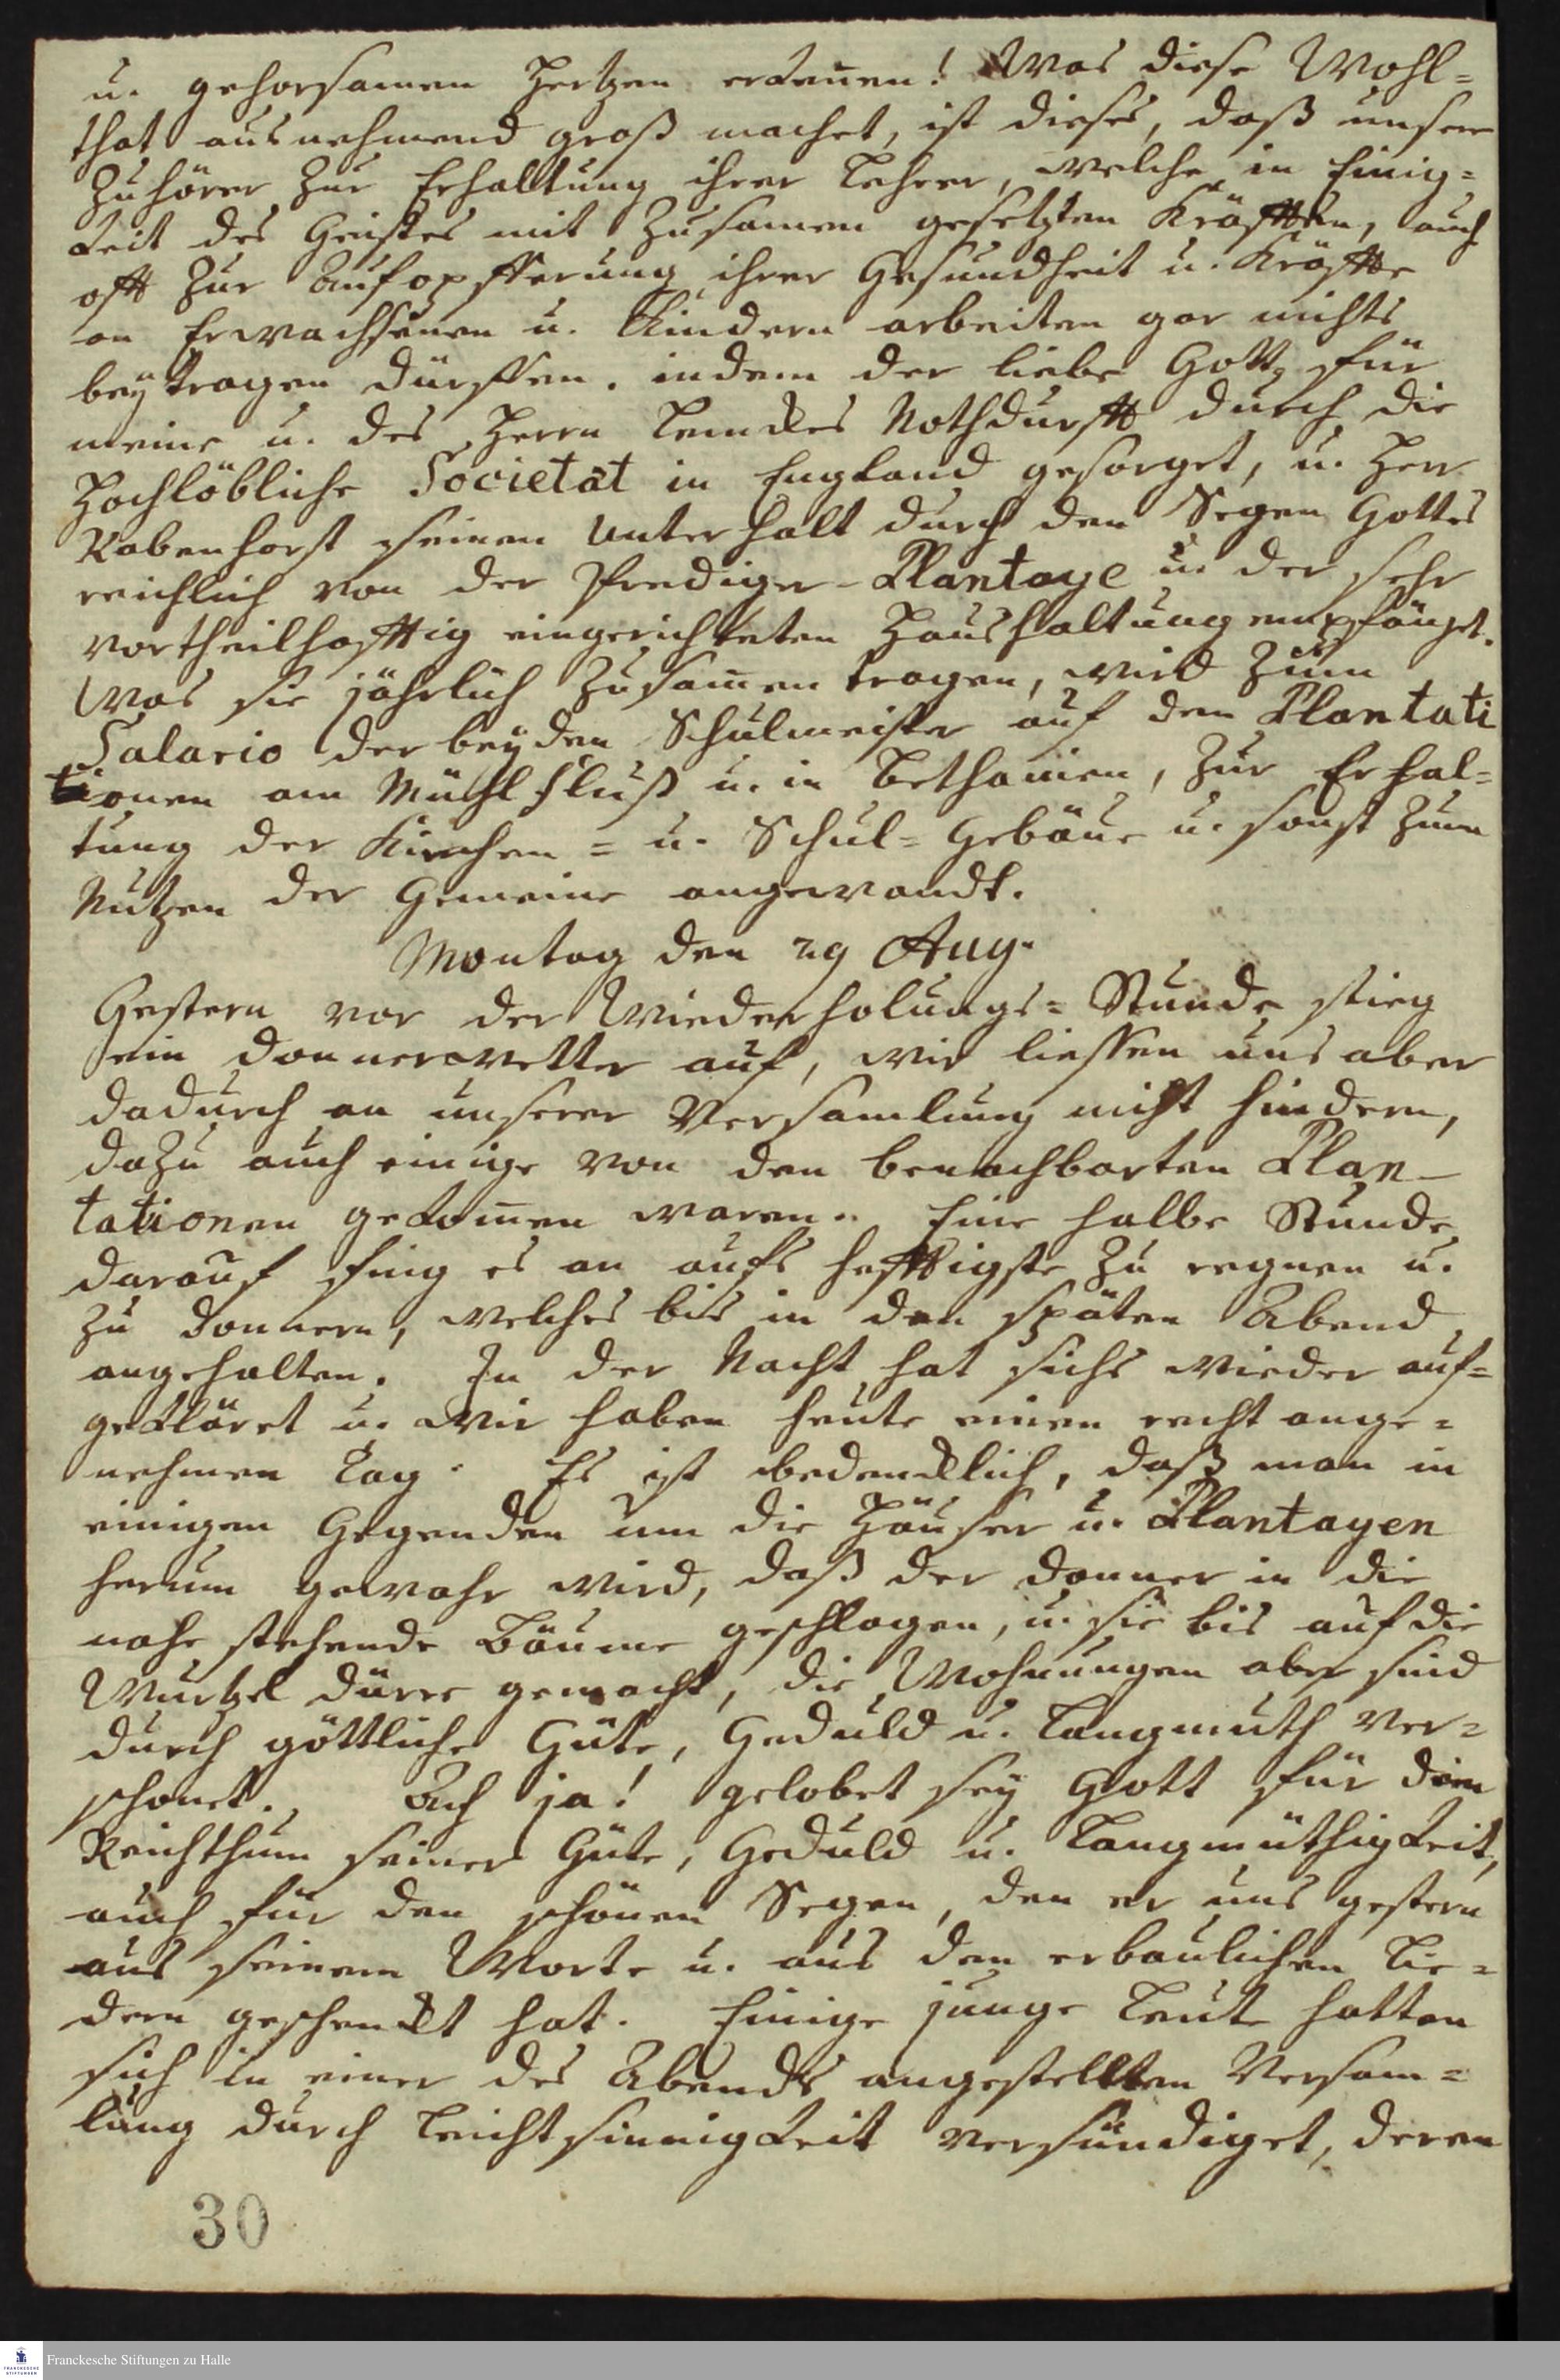 u. gehorsamen Hertzen erkeñen! Was diese Wohl=
that ausnehmend groß machet, ist dieses, daß unsere
Zuhörer zur Erhaltung ihrer Lehrer, welche in Einig=
keit des Geistes mit zusamen gesetzten Kräfften, auch
offt zur Aufopfferung ihrer Gesundheit u. Kräffte
an Erwachsenen u. Kindern arbeiten gar nichts
beytragen dürffen. indem der liebe Gott für
meine u. des Herrn Lemckes Nothdurfft durch die
Hochlöbliche Societät in England gesorget, u. Herr
Rabenhorst seinen Unterhalt durch den Segen Gottes
reichlich von der Prediger-Plantage u. der sehr
vortheilhafftig eingerichteten Haushaltung empfänget.
Was sie jährlich zusam̃en tragen, wird zum
Salario der beyden Schulmeister auf den Plantati
tionen am Mühl Fluß u. in Bethanien, zur Erhal=
tung der Kirchen= u. Schul=Gebäue u. sonst zum
Nutzen der Gemeine angewandt.
Montag den 29 Aug.
Gestern vor der Wiederholungs=Stunde stieg
ein Donnerwetter auf, wir liessen uns aber
dadurch an unserer Versamlung nicht hindern,
dazu auch einige von den benachbarten Plan-
tationen gekom̃en waren. Eine halbe Stunde
darauf fing es an aufs hefftigste zu regnen u.
zu donnern, welches bis in den späten Abend
angehalten. In der Nacht hat sichs wieder auf=
gekläret u. wir haben heute einen recht ange=
nehmen Tag. Es ist bedencklich, daß man in
einigen Gegenden um die Häuser u. Plantagen
herum gewahr wird, daß der Donner in die
nahe stehende Bäume geschlagen, u. sie bis auf die
Wurtzel dürre gemacht, die Wohnungen aber sind
durch göttliche Güte, Geduld u. Langmuth ver=
schonet. Ach ja! gelobet sey Gott für den
Reichthum seiner Güte, Geduld u. Langmüthigkeit,
auch für den schönen Segen, den er uns gestern
aus seinem Worte u. aus den erbaulichen Lie=
dern geschenckt hat. Einige junge Leute hatten
sich in einer des Abends angestellten Versam=
lung durch Leichtsinnigkeit versündiget, deren
30
Franckesche Stiftungen zu Halle